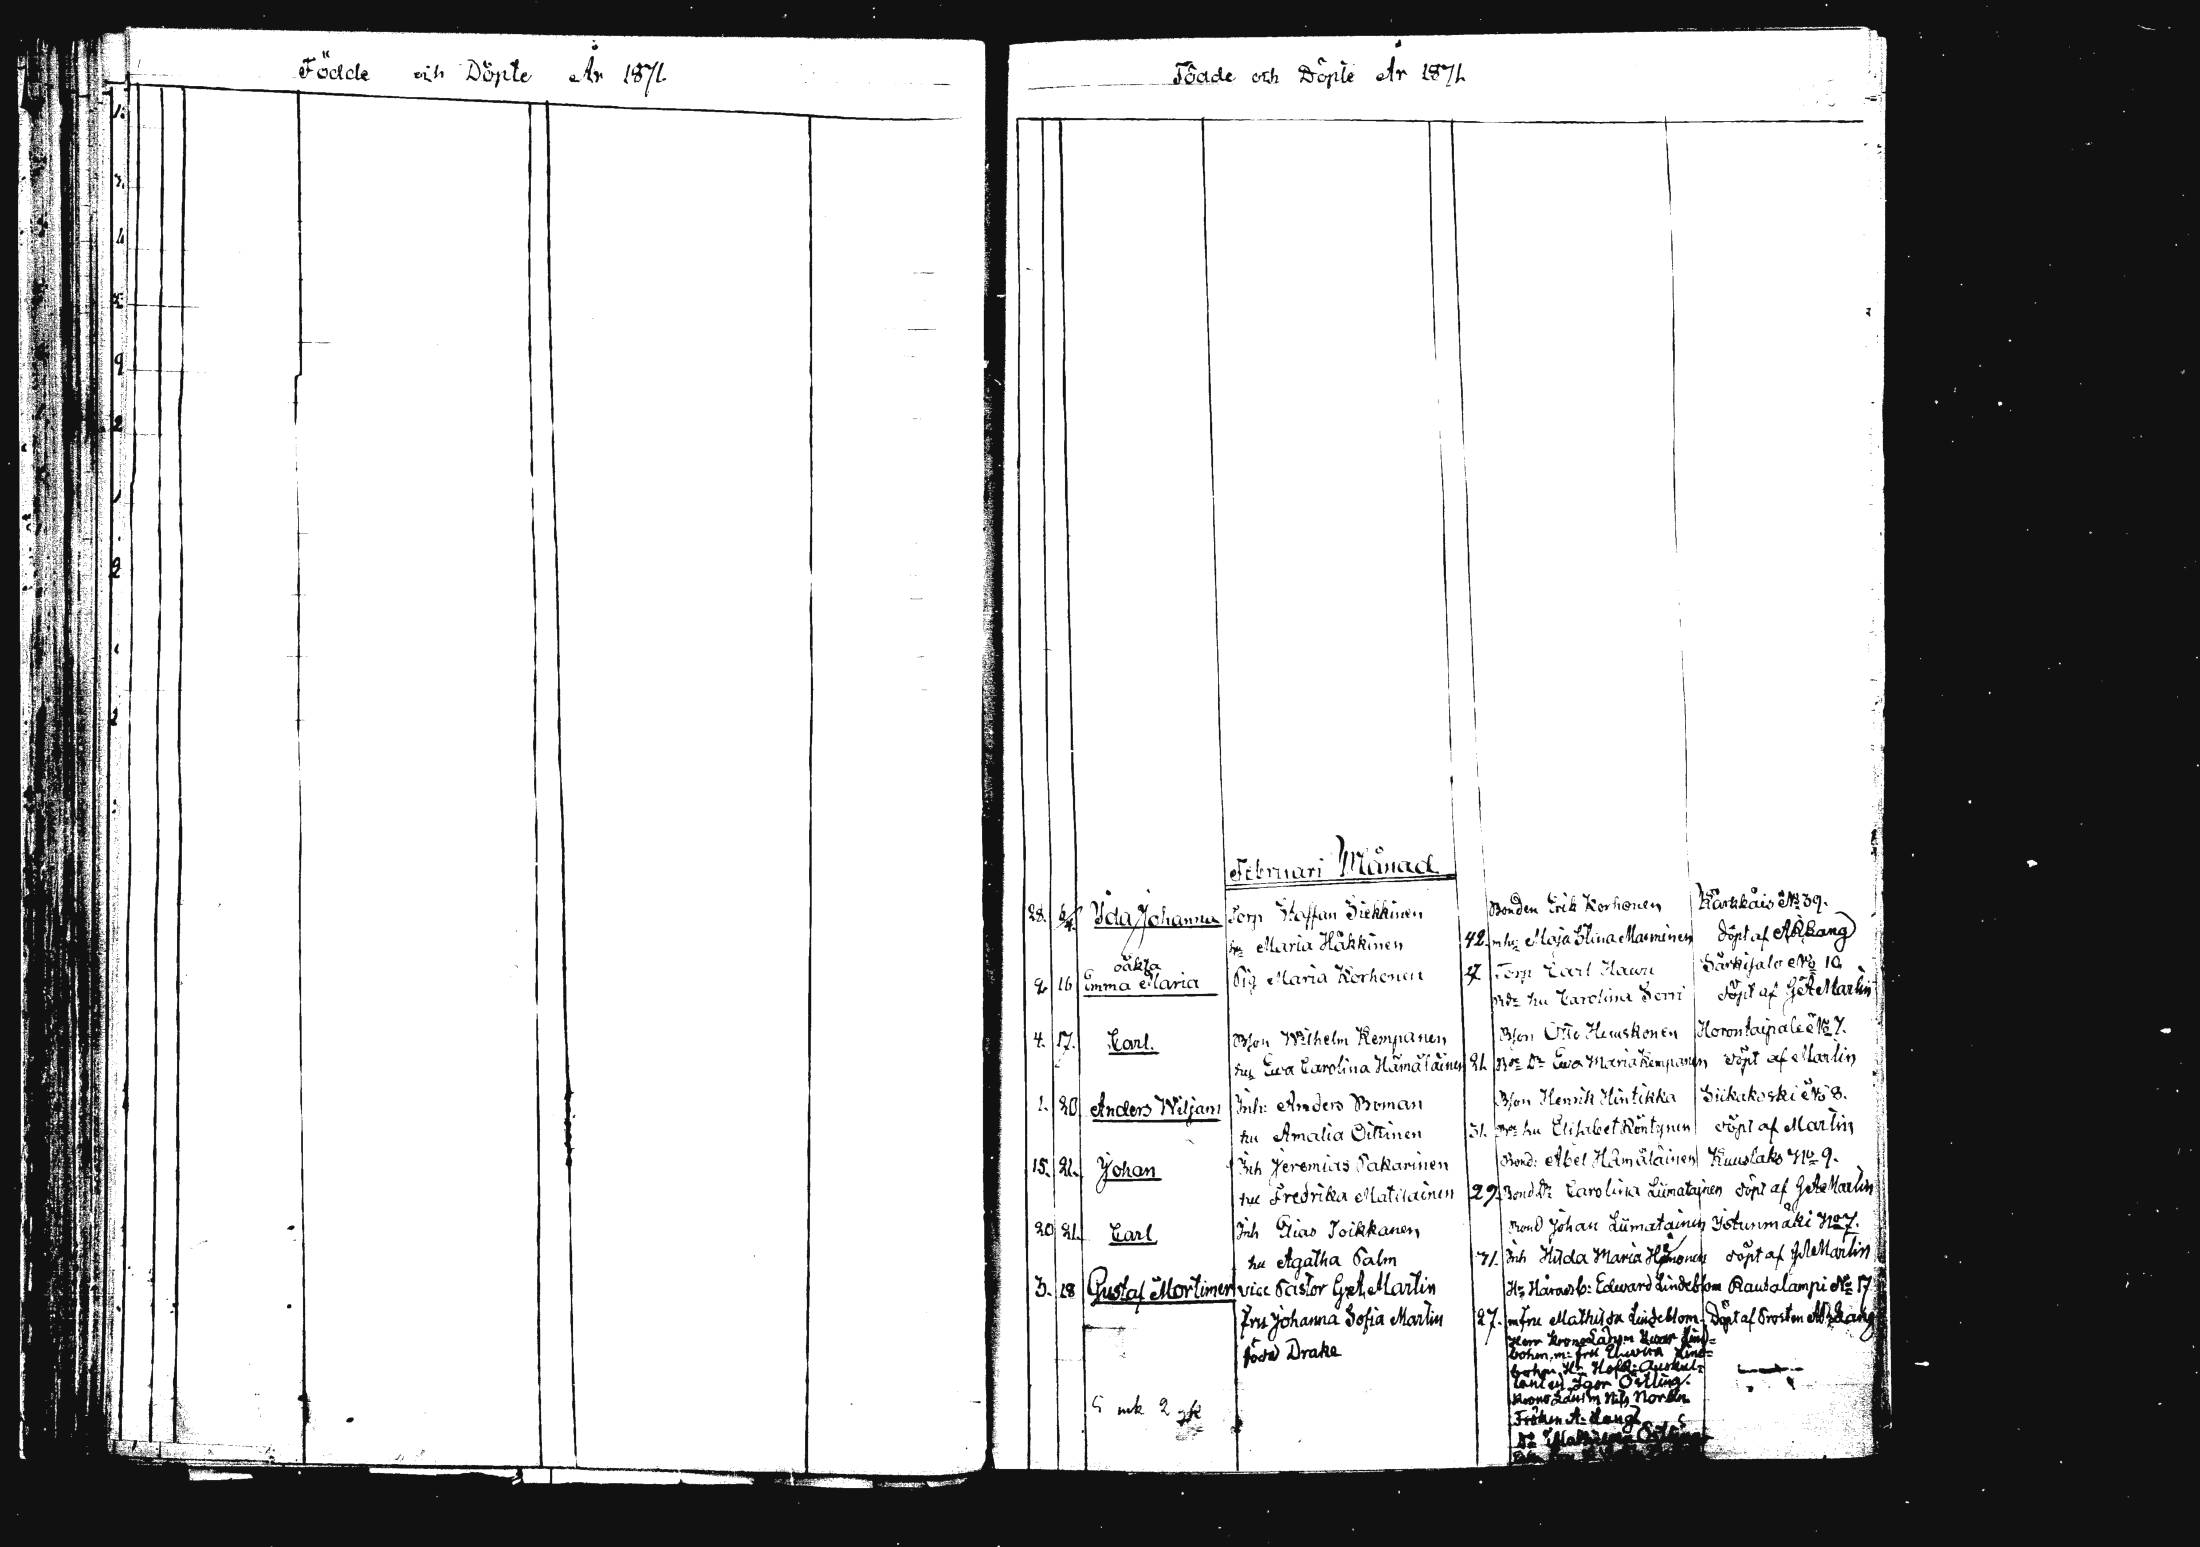 Födde och Döpte År 1871
Födde och Döpte År 1871
Februari Månad
28. Ida Johanna Torp Staffan Siekkinen Bonden Erik Korhonen Kärkkäis No 39.
hu Maria Häkkinen 42. m hu Maja Stina Manninen döpt af Lang
oäkta
2 16 Emma Maria Pig Maria Korhonen 27 Torp Carl Hauru Särkisalo No 10
hu Carolina Sorri döpt af G A Martin
4. 17. Carl. Bson Wilhelm Kempanen Bson Otto Heuskonen Horontaipale No 7.
hu Ewa Carolina Hämäläinen 21 Dr Ewa Maria Kempanen döpt af Martin
1. 20 Anders Wiljam Inh: Anders Boman Bson Henrik Hintikka Siikakoski No 8.
hu Amalia Oittinen 31. hu Elisabet Röntynen döpt af Martin
15. 21. Johan Inh Jeremias Pakarinen Bond: Abel Hämäläinen Kuuslaks No 9.
hu Fredrika Matilainen 29. Bond Dr Carolina Liimatainen döpt af G A Martin
20 21. Carl Inh Elias Toikkanen Bond Johan Liimatainen Istunmäki No 7.
hu Agatha Palm 71. Inh Hilda Maria döpt af G A Martin
3. 18 Gustaf Mortimer vice Pastor G A Martin Hr Häradsh: Edward Lindeblom Rautalampi No 17
fru Johanna Sofia Martin 27. m fru Mathilda Lindeblom Döpt af Prosten Lang
född Drake Herr Krono
m: fru
Hr Hofr: Auskul-
tanten Igor Östling.
Nils Nordln
Fröken A. Lang
5 mk 2